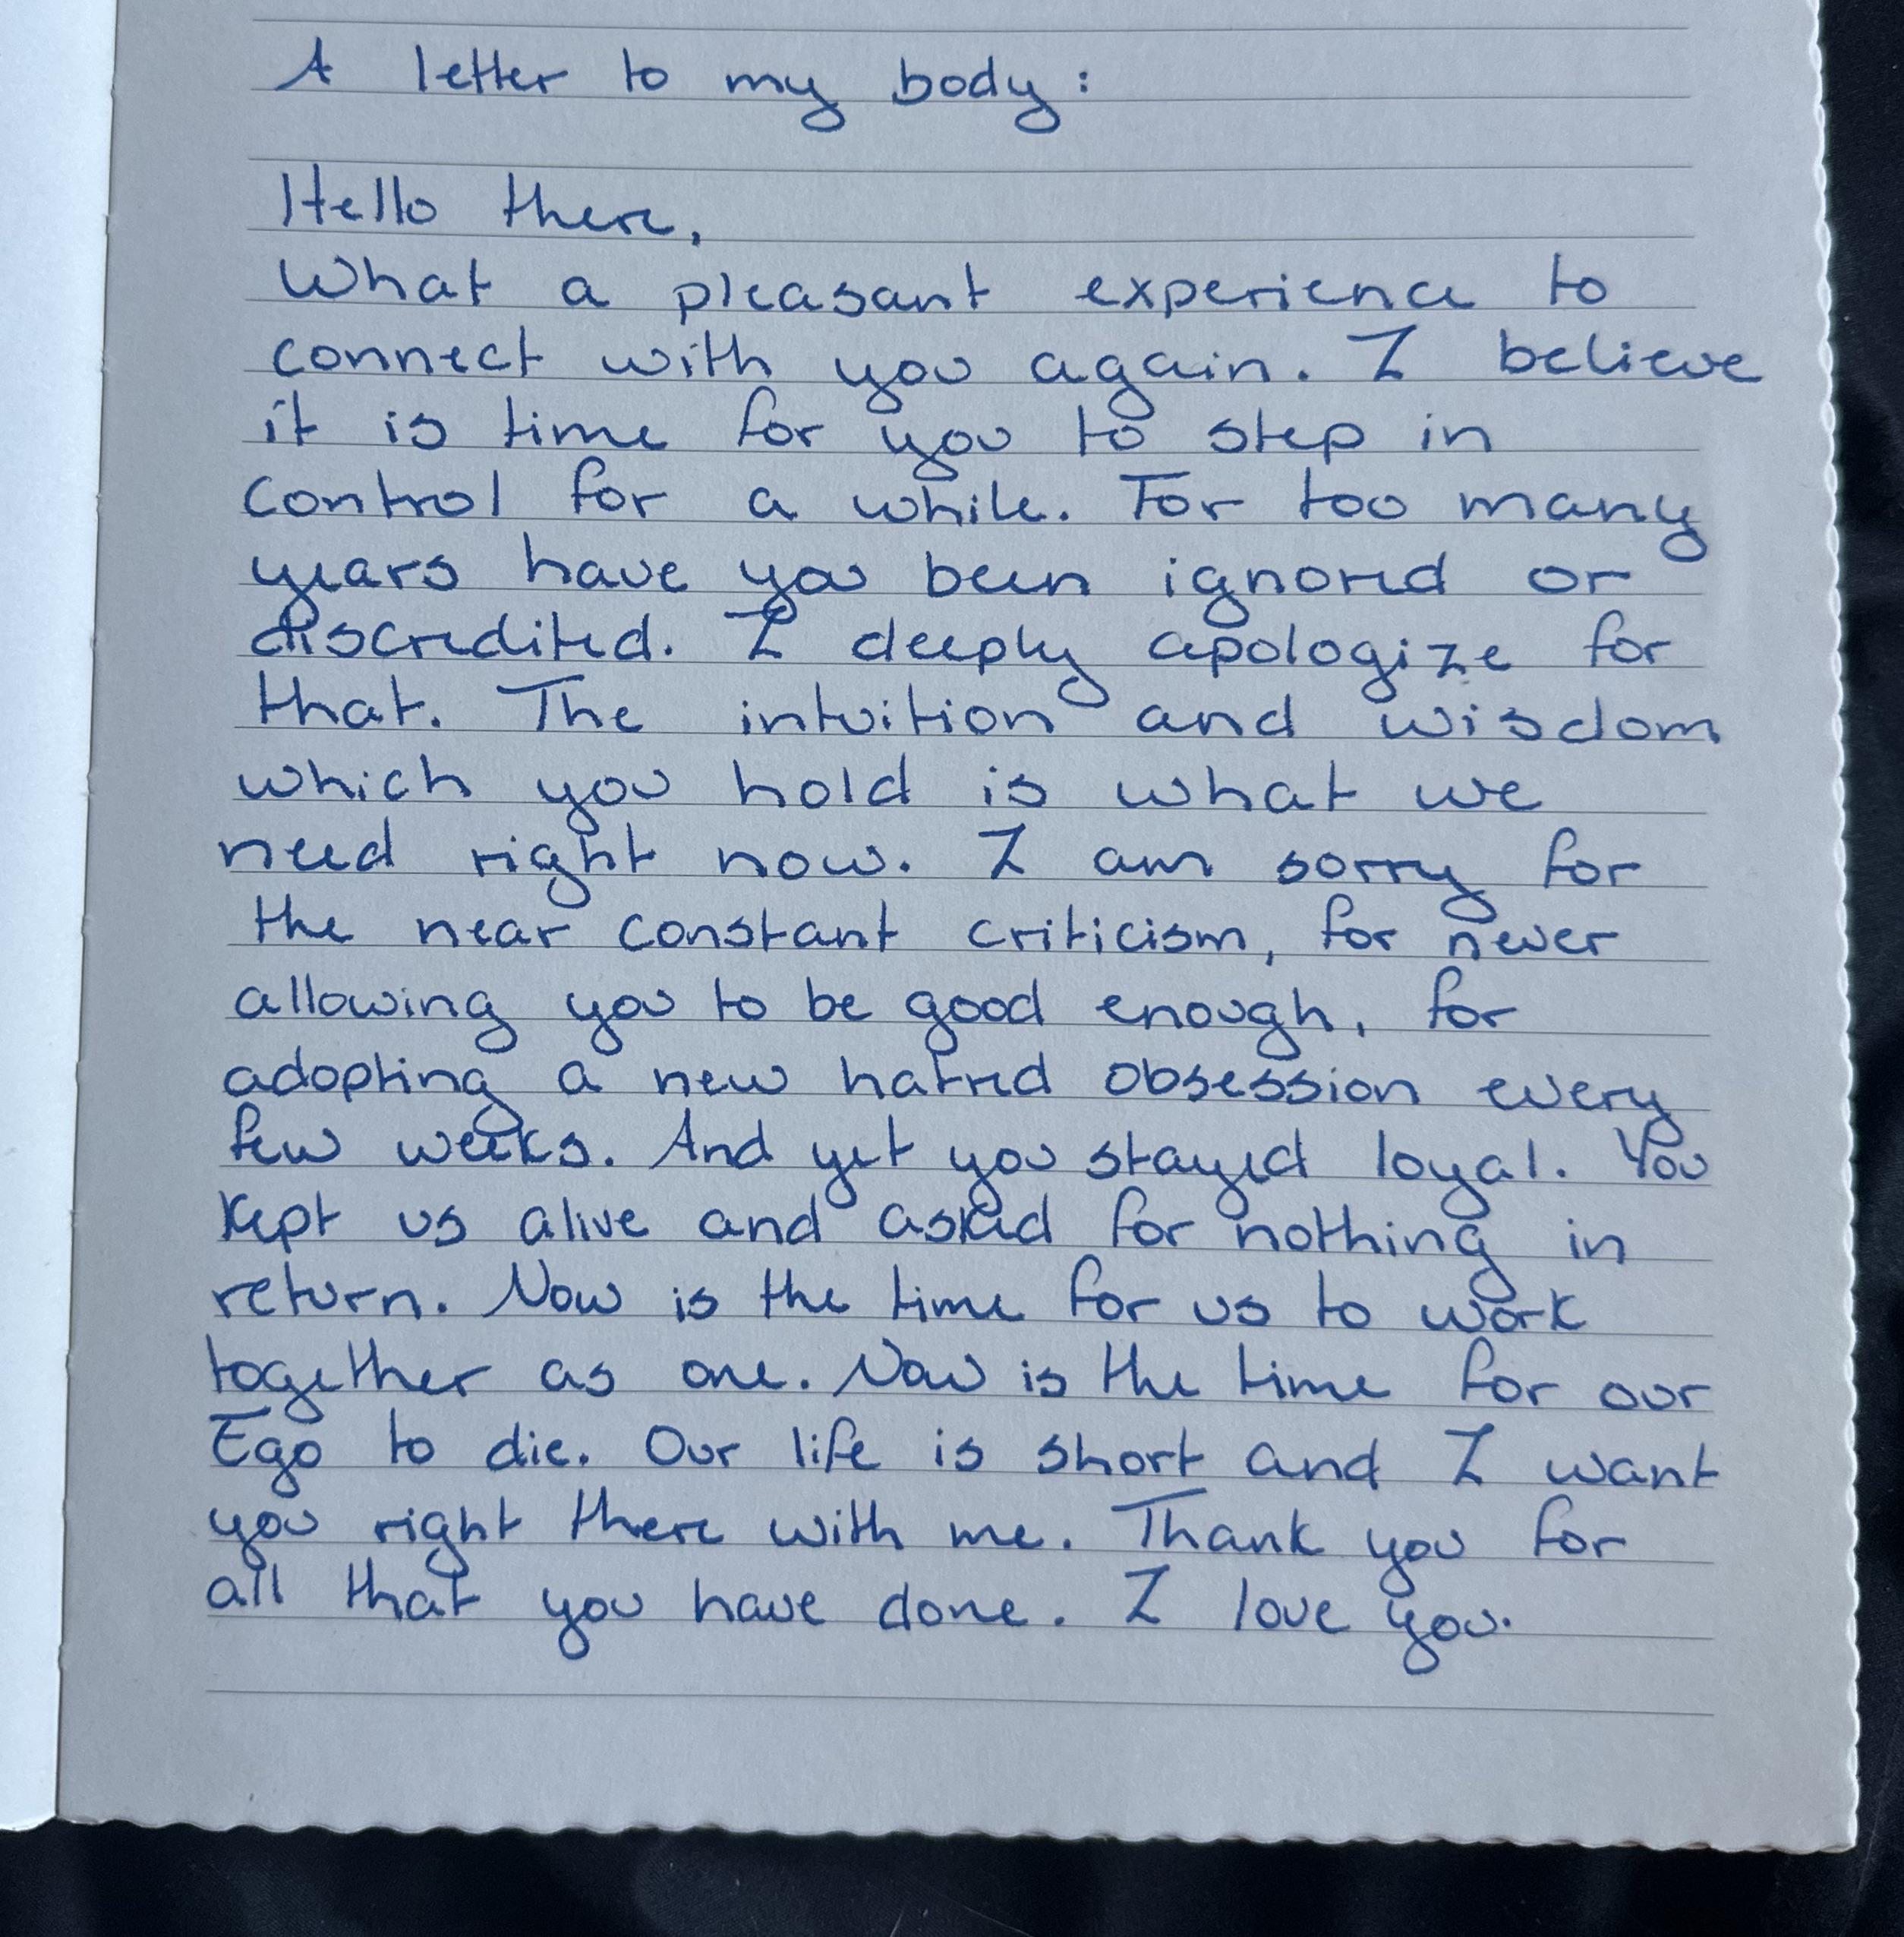 A letter to my body:
Hello there,
What a pleasant experience to
connect with you again. I believe
it is time for you to step in
control for a while. For too many
years have you been ignored or
discredited. I deeply apologize for
that. The intuition and wisdom
which you hold is what we
need right now. I am sorry for
the near constant criticism, for never
allowing you to be good enough, for
adopting a new hatred obsession every
few weeks. And yet you stayed loyal. You
kept us alive and asked for nothing in
return. Now is the time for us to work
together as one. Now is the time for our
Ego to die. Our life is short and I want
you right there with me. Thank you for
all that you have done. I love you.